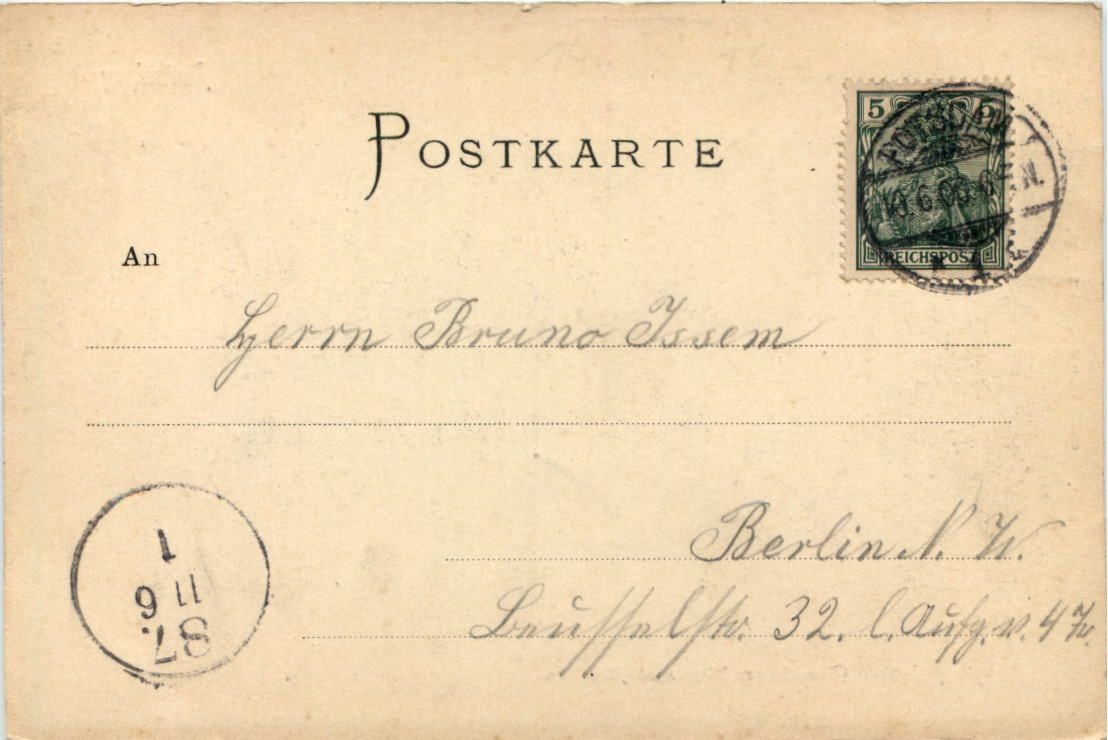 POSTKARTE
5 5
POTSDAM
10.6.00. 6-7 N.
REICHSPOST
* 1
An
Herrn Bruno Issem
Berlin N. W.
Beusselstr. 32. l. Aufg. v. 4 Tr.
1
11 6
87.